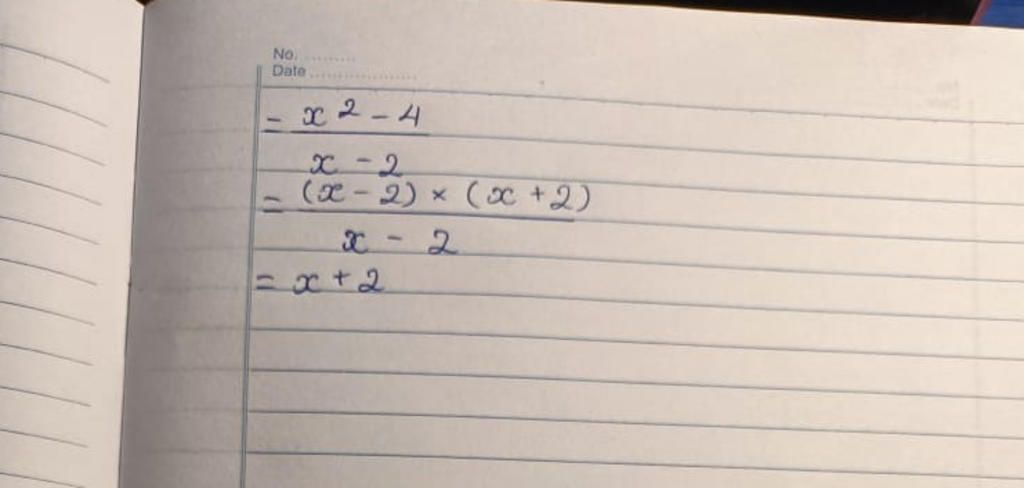 No. ..........
Date ...................
= x² - 4
x - 2
= (x - 2) × (x + 2)
x - 2
= x + 2